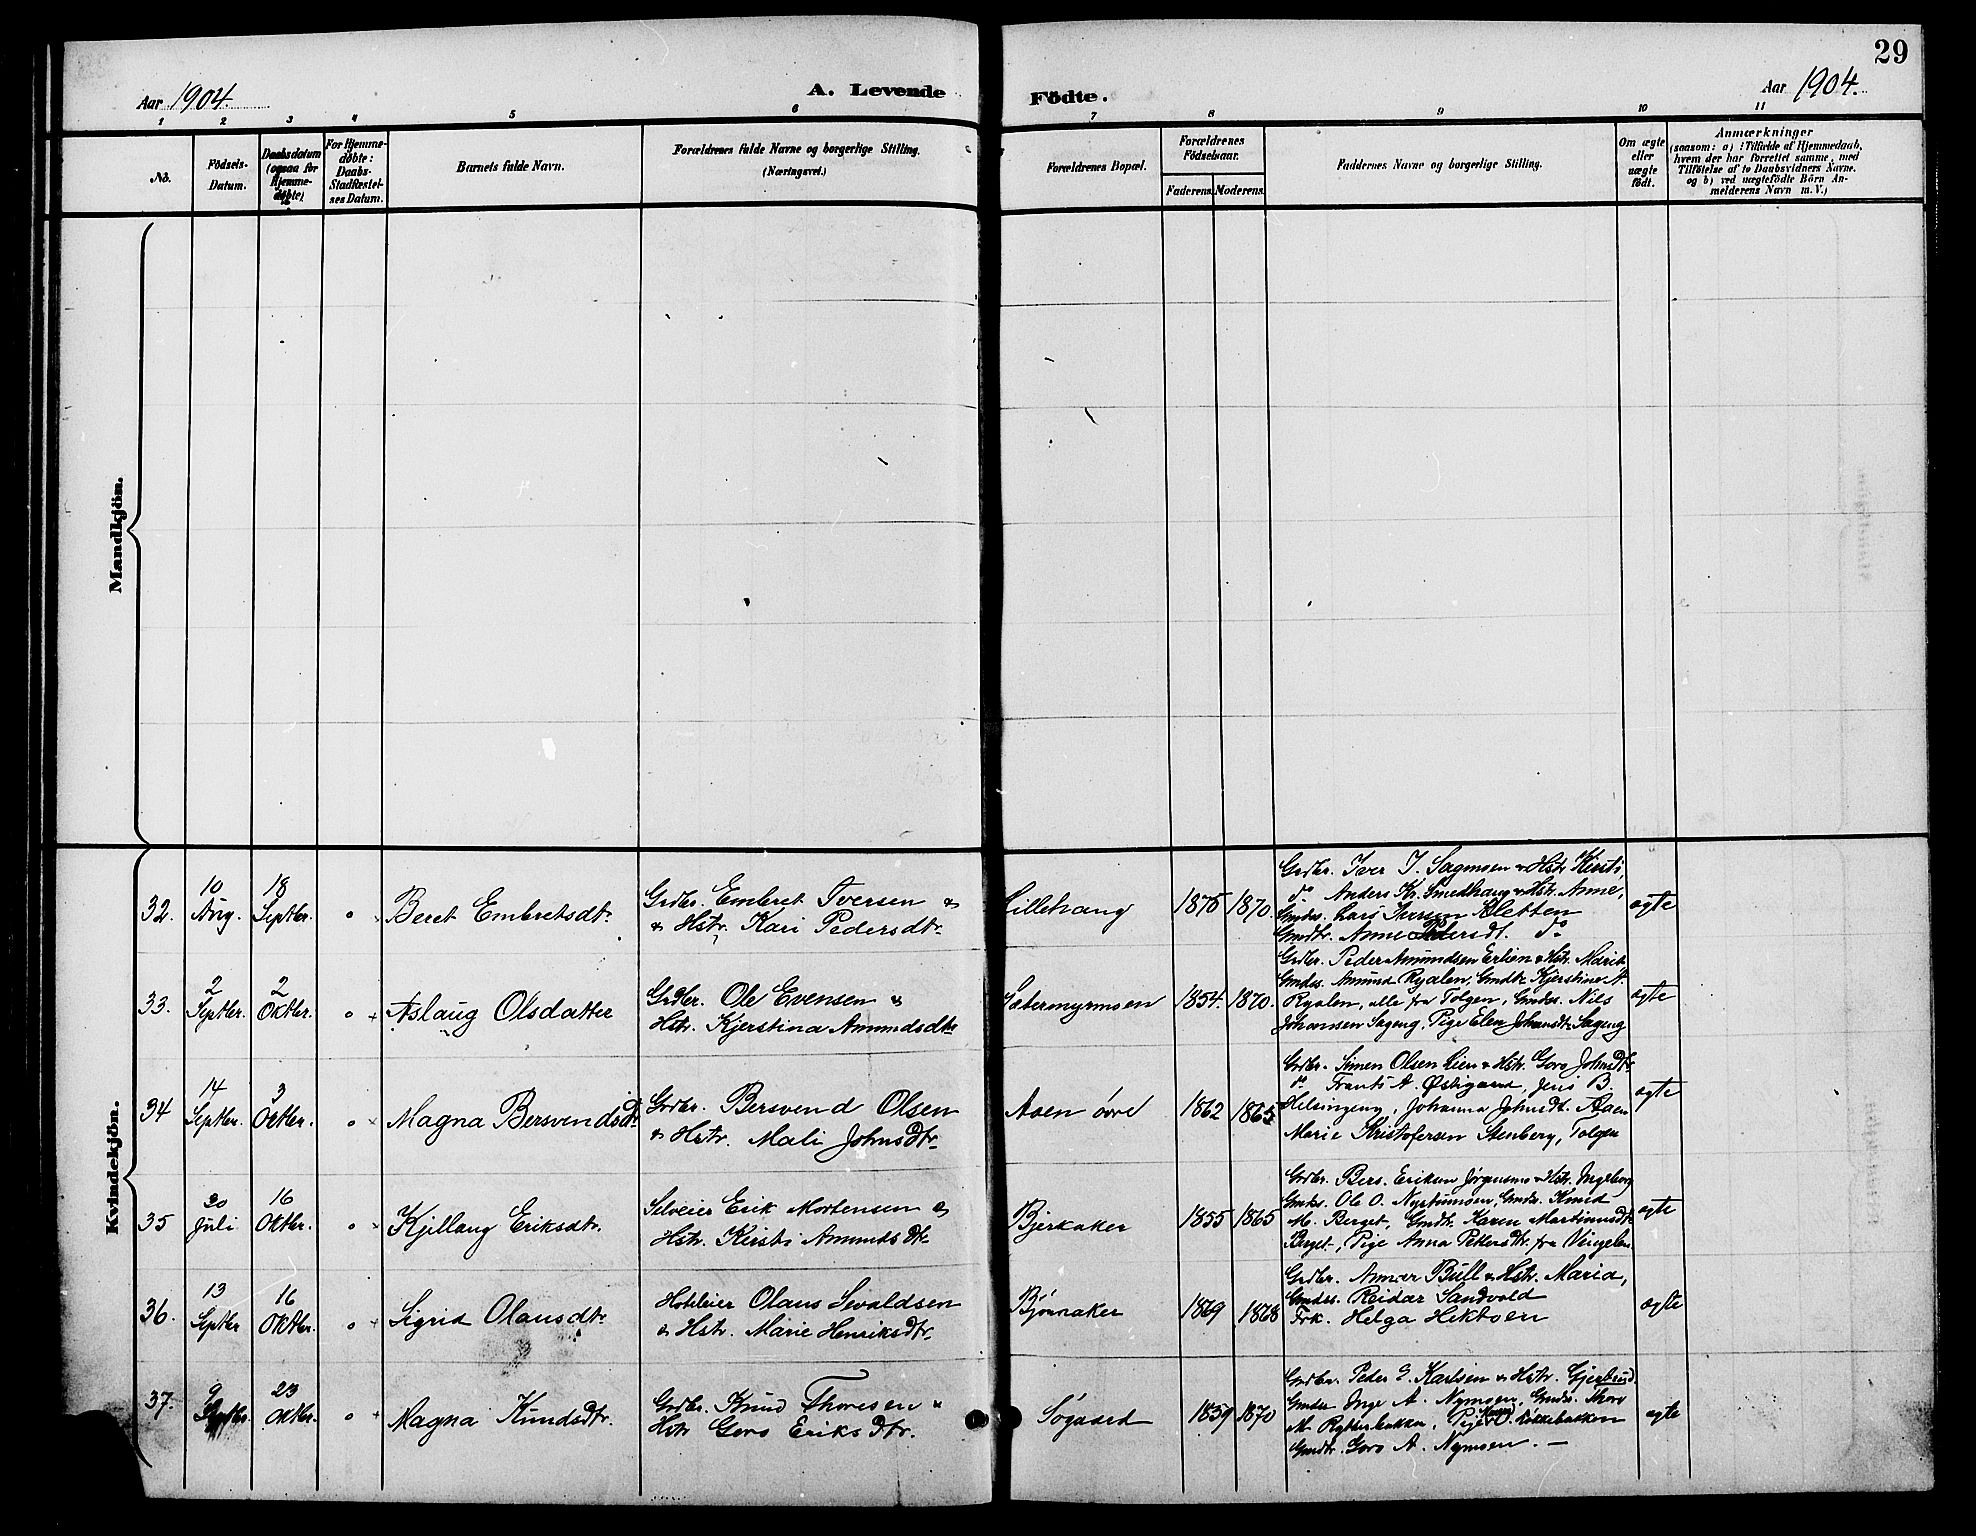 29
Aar 1904.
A. Levende
Födte.
Aar 1904.
1 2 3 4 5 6 7 8 9 10 11
No.
Födsels-
Datum.
Daabsdatum
(ogsaa for
Hjemme-
døbte)
For Hjemme-
døbte:
Daabs-
Stadfæstel-
ses Datum.
Barnets fulde Navn.
Forældrenes fulde Navne og borgerlige Stilling.
(Næringsvei.)
Forældrenes Bopæl.
Forældrenes
Födselsaar.
Faderens.
Moderens.
Faddernes Navne og borgerlige Stilling.
Om ægte
eller
uægte
födt.
Anmærkninger
(saasom: a) i Tilfælde af Hjemmedaab,
hvem der har forrettet samme, med
Tilföielse af to Daabsvidners Navne.
og b) ved uægtefödte Börn An-
melderens Navn m. V.)
Mandkjön.
Kvindekjön.
32.
10
Aug.
18
Septbr.
Beret Embretsdtr.
Grdbr. Embret Iversen &
& Hstr. Kari Pedersdtr.
Lillehaug
1875
1870.
Grdbr. Iver J. Sagmoen & Hstr. Kirsti,
do Anders Kr. Smedhaug & Hstr. Anne,
Gmds. Lars Iversen Kletten
Gmdtr. Anne Pedersdt. do
ægte
33.
2
Septbr.
2
Oktbr.
Aslaug Olsdatter
Grdbr. Ole Evensen &
Hstr. Kjerstina Amundsdtr
Sætermyrmoen
1854.
1870.
Grdbr. Peder Amundsen Erlien & Hstr. Marit
Gmds. Amund Ryalen, Gmdtr. Kjerstine A.
Ryalen, alle fra Tolgen, Gmds. Nils
Johansen Sageng, Pige Elen Johansdtr. Sageng
ægte
34
14
Septbr.
3
Octbr.
Magna Bersvendsdtr.
Grdbr. Bersvend Olsen
& Hstr. Mali Johnsdtr.
Aaen övre
1862
1865
Grdbr. Simen Olsen Lien & Hstr. Goro Johnsdtr.
do Frants A. Østigaard, Jens B.
Helsingeng, Johanna Johnsdt. Aaen
Marie Kristofersen Stenberg, Tolgen
ægte
35
30
Juli
16
Oktbr.
Kjellaug Eriksdtr.
Selveier Erik Mortensen &
Hstr. Kirsti Amundsdtr.
Bjerkaker
1855
1865
Grdbr. Bers. Eriksen Jørgensmo & Hstr. Ingeborg
Gmds. Ole O. Nystumoen, Gmds. Knud
M. Berget, Gmdtr. Karen Martinusdtr
Berget, Pige Anna Pettersdtr. fra Vingelen
ægte
36.
13
Septbr
16
Oktbr.
Sigrid Olausdtr
Hoteleier Olaus Sevaldsen
& Hstr. Marie Henriksdtr.
Bjørnaker
1869
1868
Grdbr. Annar Bull & Hstr. Maria,
Gmds. Reidar Sandvold
Frk. Helga Hektoen
ægte
37.
9
Septbr.
23
Oktbr.
Magna Knudsdtr.
Grdbr. Knud Thoresen &
Hstr Goro Eriksdtr.
Søgaard
1859
1870
Grdbr. Peder E. Karlsen & Hstr. Gjertrud
Gmds Inge A. Nymoen, Gmds. Thore
M. Rytterbakken, Pige O. Løkkebakken
Gmdtr. Goro A. Nymoen. —
ægte